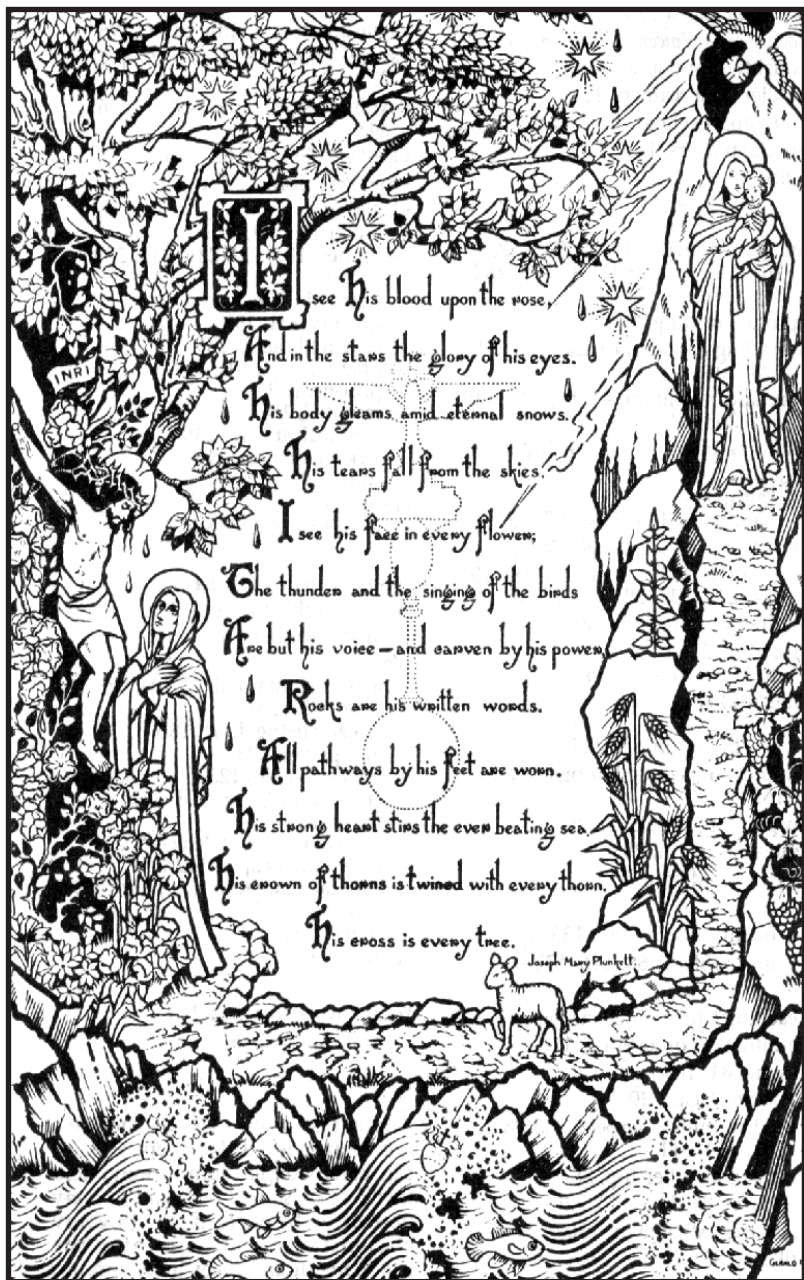 I see His blood upon the rose,
And in the stars the glory of his eyes.
His body gleams amid eternal snows.
His tears fall from the skies.
I see his face in every flower;
The thunder and the singing of the birds
Are but his voice – and carven by his power,
Rocks are his written words.
All pathways by his feet are worn.
His strong heart stirs the ever beating sea.
His crown of thorns is twined with every thorn.
His cross is every tree.
Joseph Mary Plunkett.
INRI